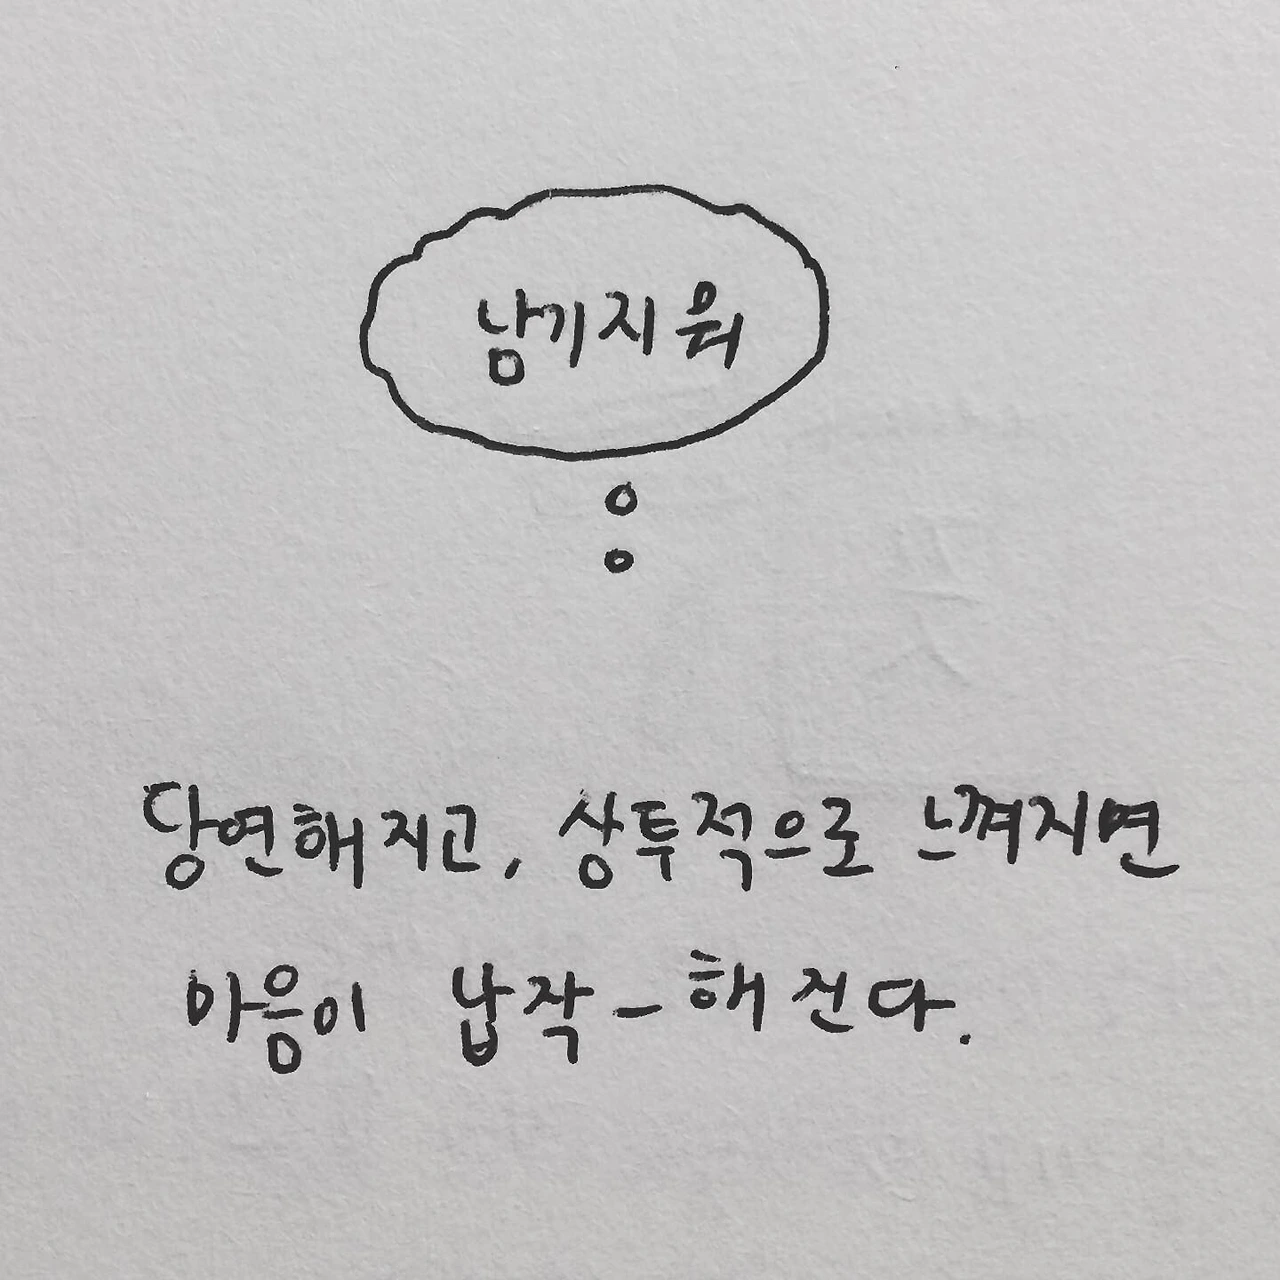 남기지 워
당연해지고, 상투적으로 느껴지면
마음이 납작-해진다.